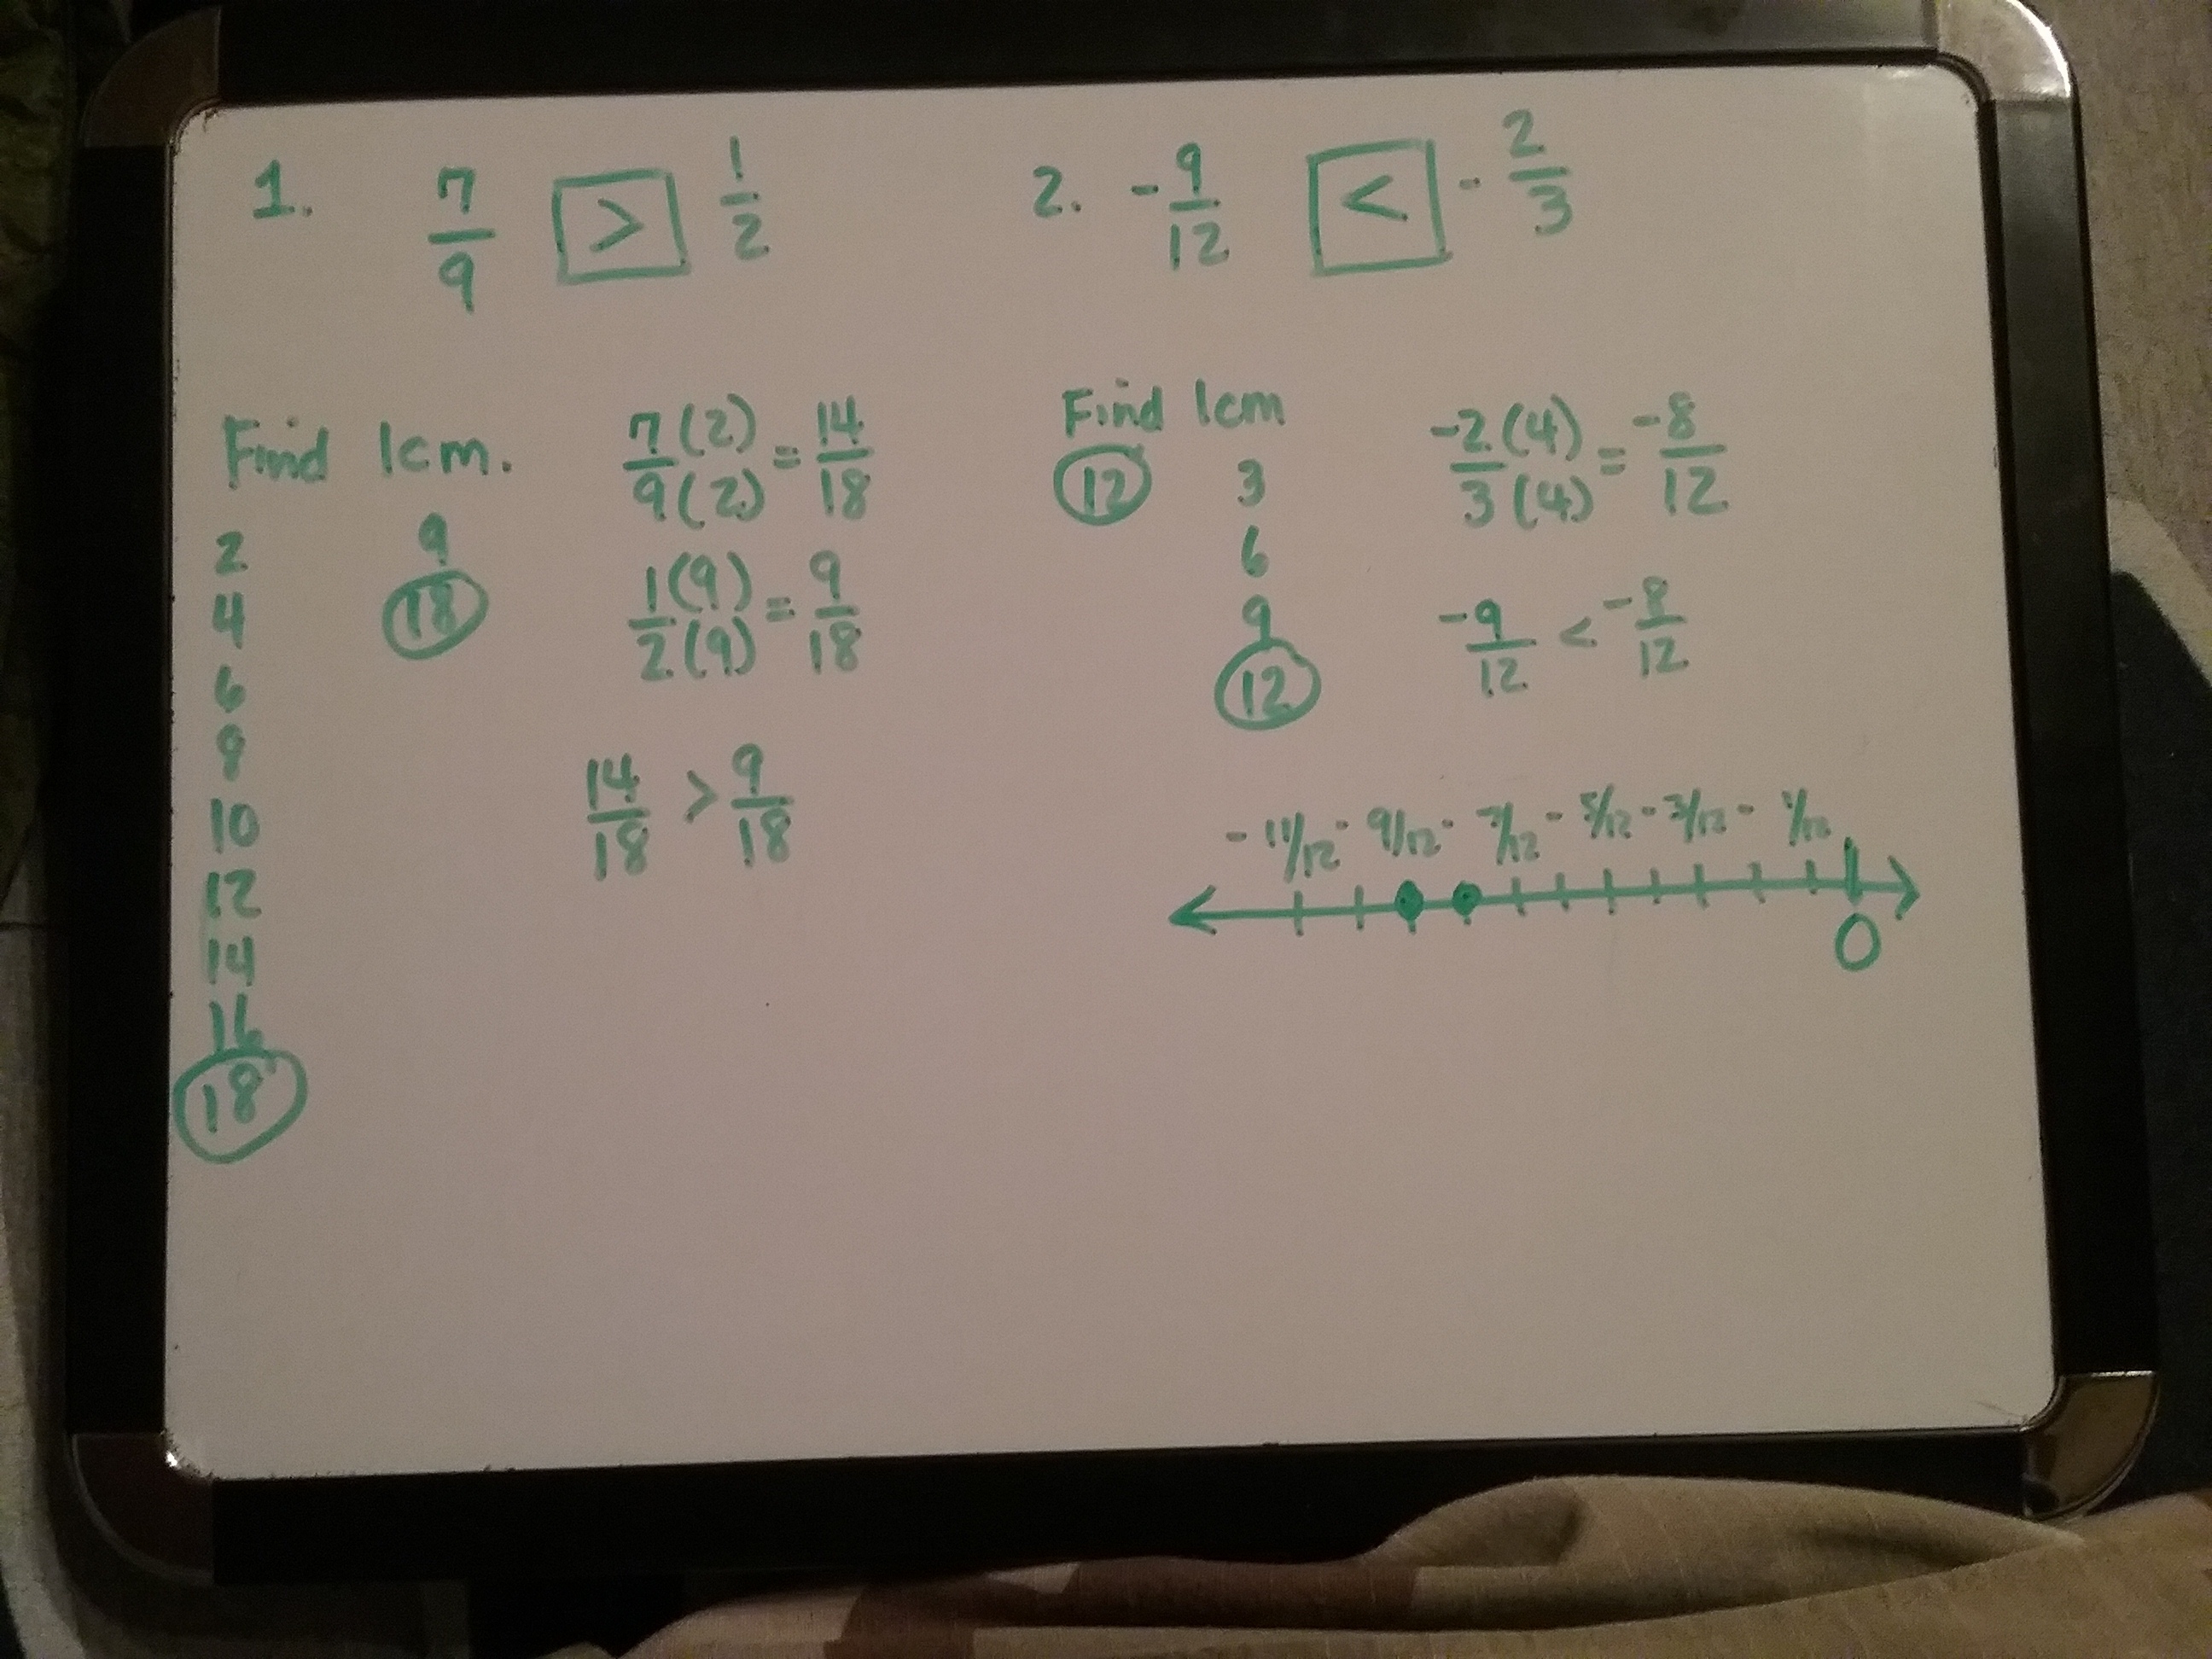 1. 7/9 > 1/2
Find lcm.
2 9
4 18
6
8
10
12
14
16
18
7(2)/9(2) = 14/18
1(9)/2(9) = 9/18
14/18 > 9/18
2. -9/12 < -2/3
Find lcm
12 3
6
9
12
-2(4)/3(4) = -8/12
-9/12 < -8/12
-11/12 -9/12 -7/12 -5/12 -3/12 -1/12
0